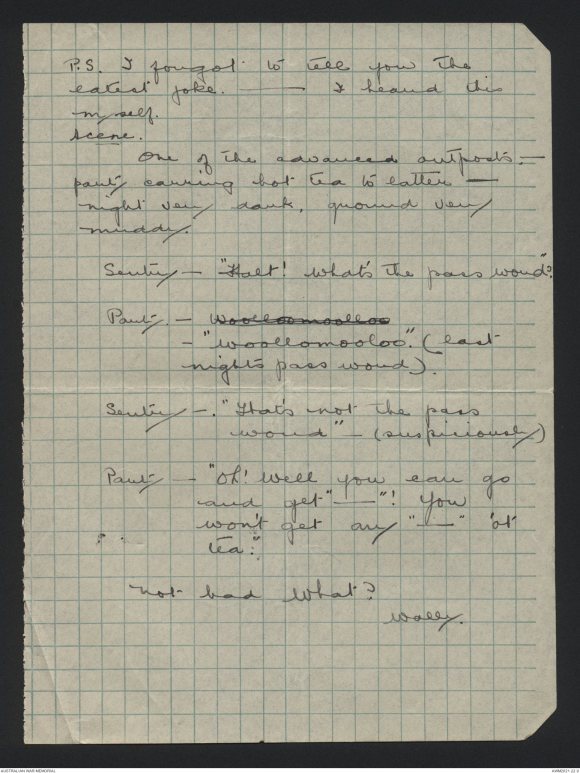 P.S. I forgot to tell you the
latest joke. —— I heard this
myself.
Scene.
One of the advanced outposts. —
party carrying hot tea to latter —
night very dark, ground very
muddy.
Sentry — "Halt! what's the pass word"?
Party. — Woolloomoolloo
— "Woollomooloo". (last
night's pass word).
Sentry —. "That's not the pass
word" — (suspiciously)
Party — "Oh! Well you can go
and get "——"! You
won't get any "——" 'ot
tea."
Not bad What?
Wally.
AUSTRALIAN WAR MEMORIAL